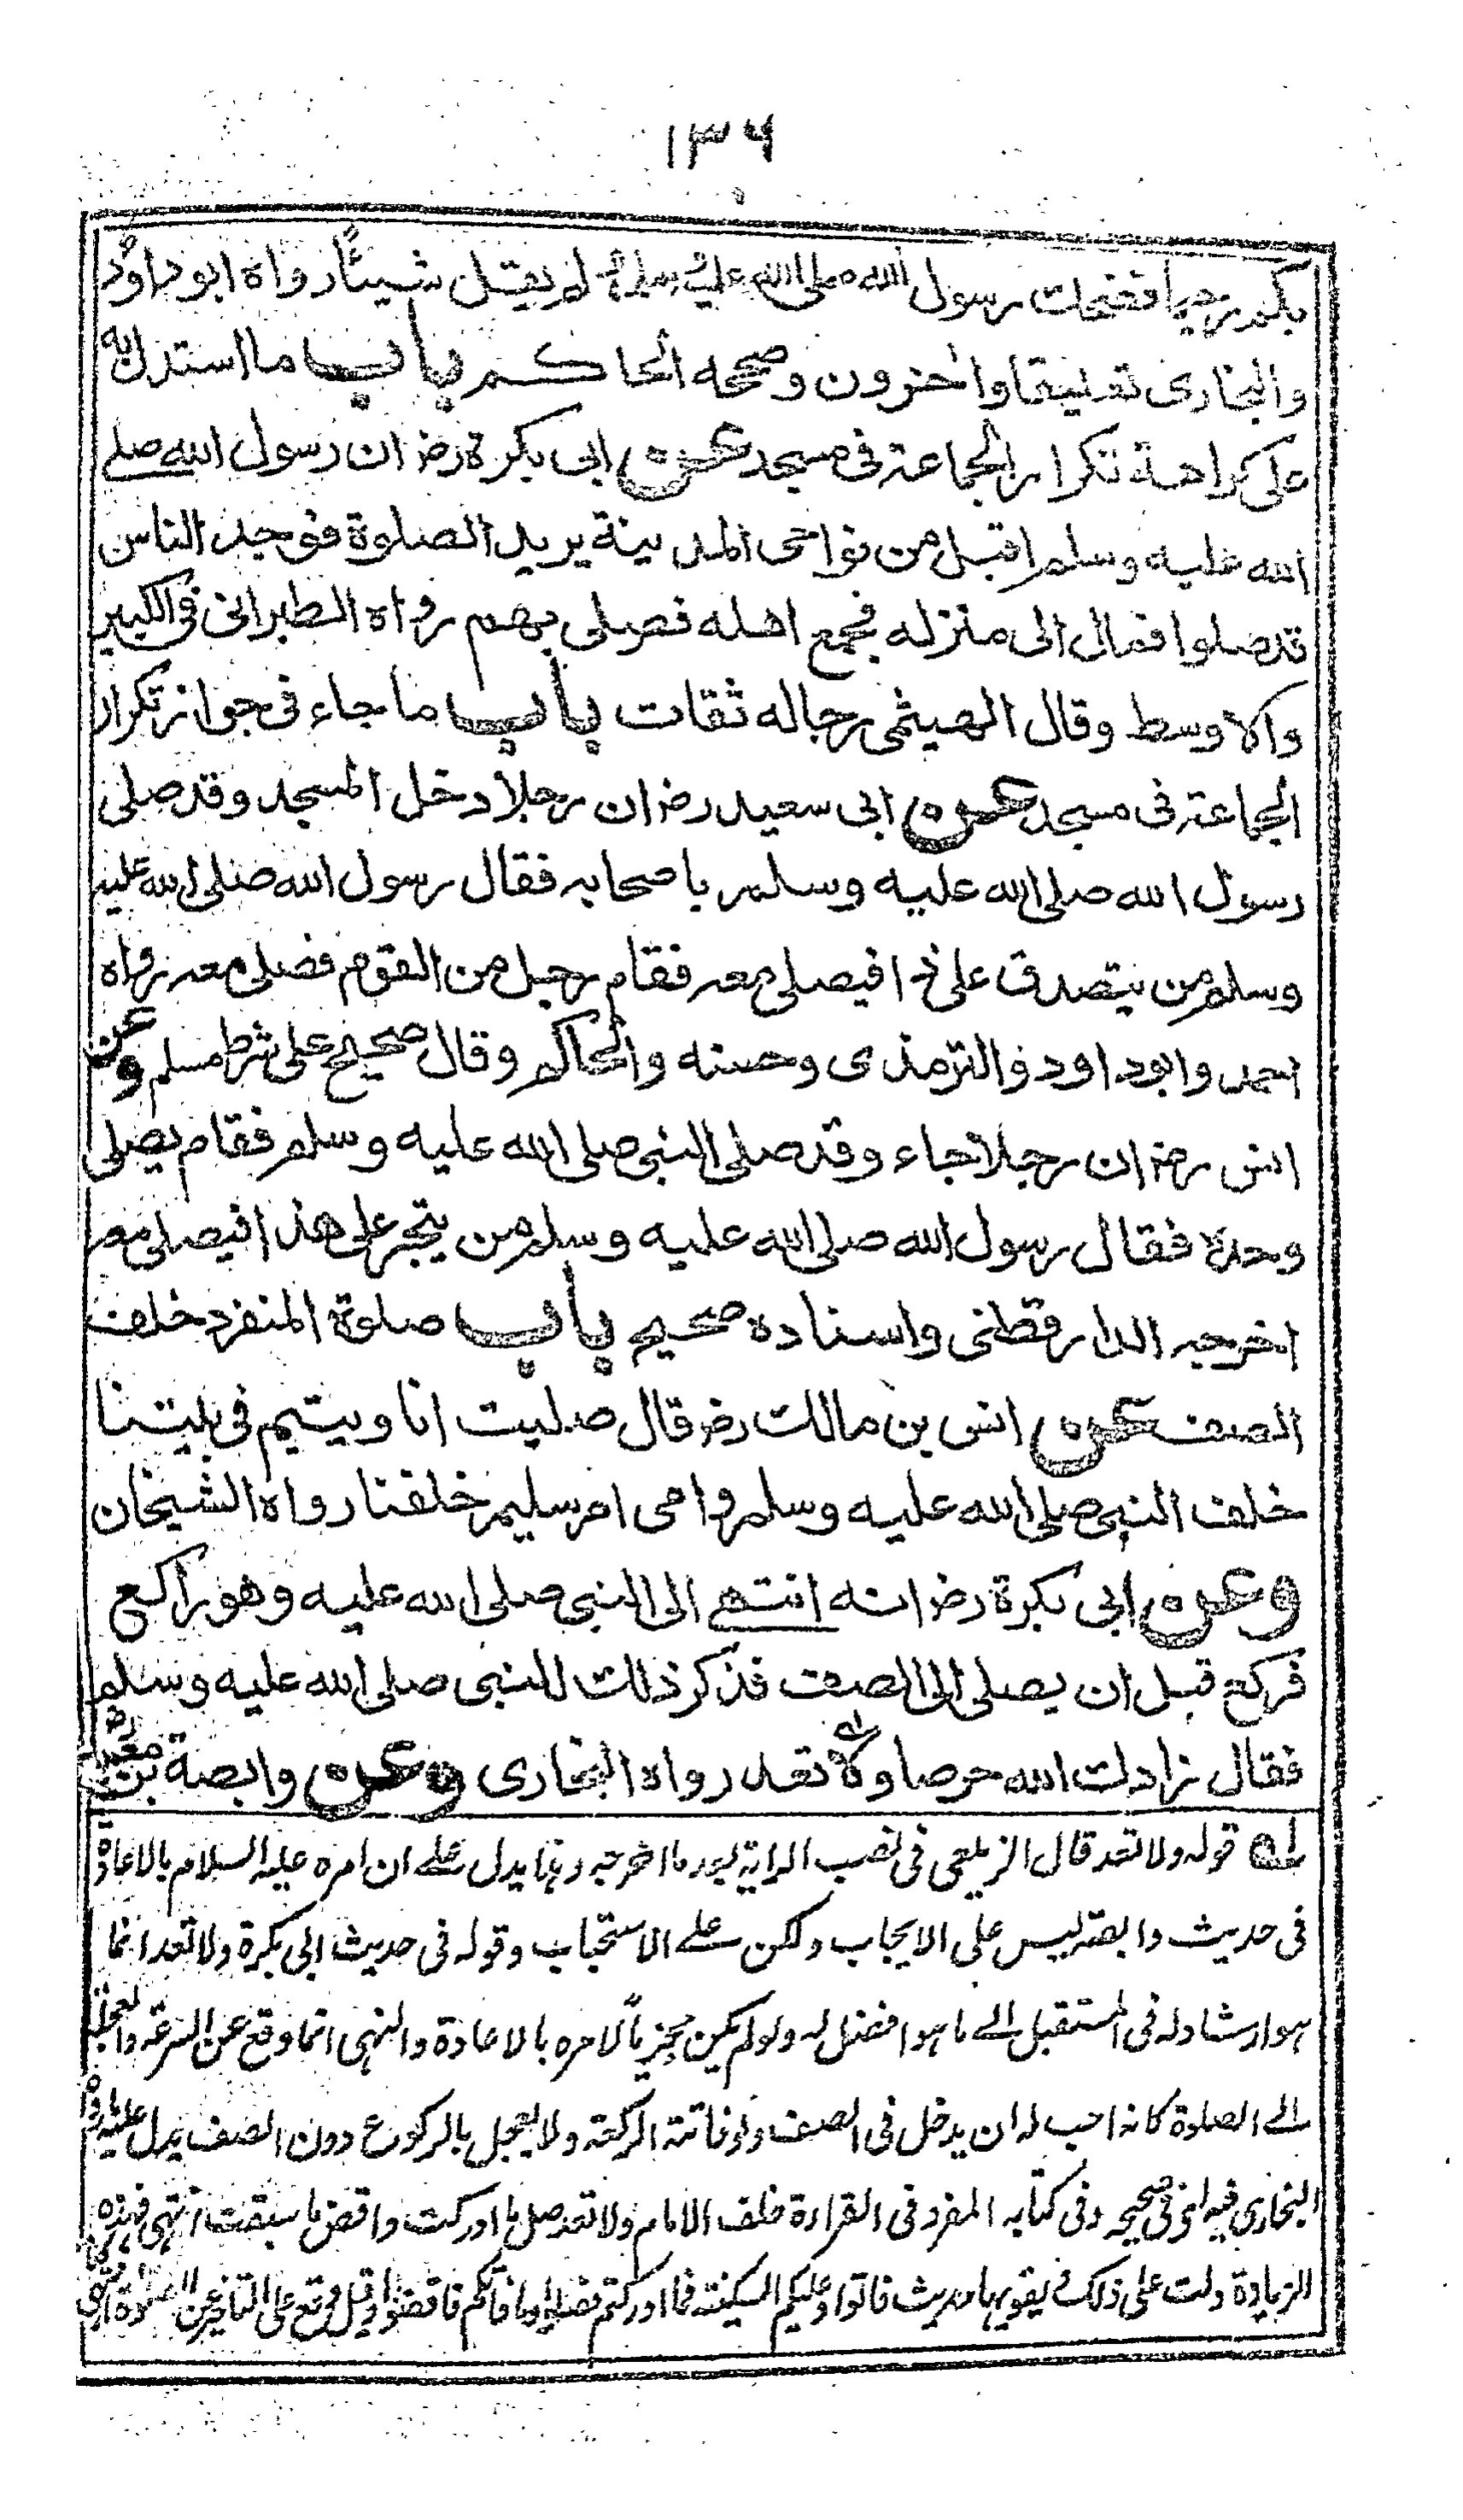 ١٣٦
بكم رحيما فضحك رسول الله صلى الله عليه وسلم ولم يقل شيئا رواه ابو داود
والبخارى تعليقا واخرون وصححه الحاكم باب ما استدل به
على كراهة تكرار الجماعة فى مسجد عن ابى بكرة رض ان رسول الله صلى
الله عليه وسلم اقبل من نواحى المدينة يريد الصلوة فوجد الناس
قد صلوا فمال الى منزله فجمع اهله فصلى بهم رواه الطبرانى فى الكبير
والاوسط وقال الهيثمى رجاله ثقات باب ما جاء فى جواز تكرار
الجماعة فى مسجد عن ابى سعيد رض ان رجلا دخل المسجد وقد صلى
رسول الله صلى الله عليه وسلم باصحابه فقال رسول الله صلى الله عليه
وسلم من يتصدق على ذا فيصلى معه فقام رجل من القوم فصلى معه رواه
احمد وابوداود والترمذى وحسنه والحاكم وقال صحيح على شرط مسلم وعن
انس رض ان رجلا جاء وقد صلى النبى صلى الله عليه وسلم فقام يصلى
وحده فقال رسول الله صلى الله عليه وسلم من يتجر على هذا فيصلى معه
اخرجه الدارقطنى واسناده صحيح باب صلوة المنفرد خلف
الصف عن انس بن مالك رض قال صليت انا ويتيم فى بيتنا
خلف النبى صلى الله عليه وسلم وامى ام سليم خلفنا رواه الشيخان
وعن ابى بكرة رض انه انتهى الى النبى صلى الله عليه وهو راكع
فركع قبل ان يصلى الى الصف فذكر ذلك للنبى صلى الله عليه وسلم
فقال زادك الله حرصا ولا تعد رواه البخارى وعن وابصة بن معبد رض
له قوله ولا تعد قال الزيلعى فى نصب الراية بعد ما اخرجه وهذا يدل على ان امره عليه السلام بالاعادة
فى حديث وابصة ليس على الايجاب ولكن على الاستحباب وقوله فى حديث ابى بكرة ولا تعد انما
هو ارشاد له فى المستقبل الى ما هو افضل له ولو لم يكن مجزيا لامره بالاعادة والنهى انما وقع عن السرعة والعجلة
الى الصلوة كانه احب له ان يدخل فى الصف ولو فاتته الركعة ولا يعجل بالركوع دون الصف يدل عليه ما رواه
البخارى فيه فى غير صحيحه وفى كتابه المفرد فى القراءة خلف الامام ولا تعد صل ما ادركت واقض ما سبقت انتهى فهذه
الزيادة دلت على ذلك ويقويها حديث فاتوا وعليكم السكينة فما ادركتم فصلوا وما فاتكم فاقضوا وقيل وقع على التاخر عن الصلوة انتهى